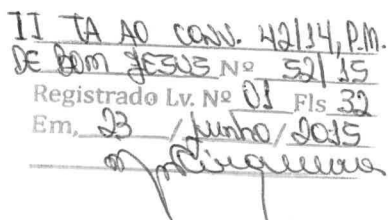 II TA AO CONV. 42/14, P.M.
DE BOM JESUS Nº 52/15
Registrado Lv. Nº 01 Fls 32
Em, 23 / Junho / 2015